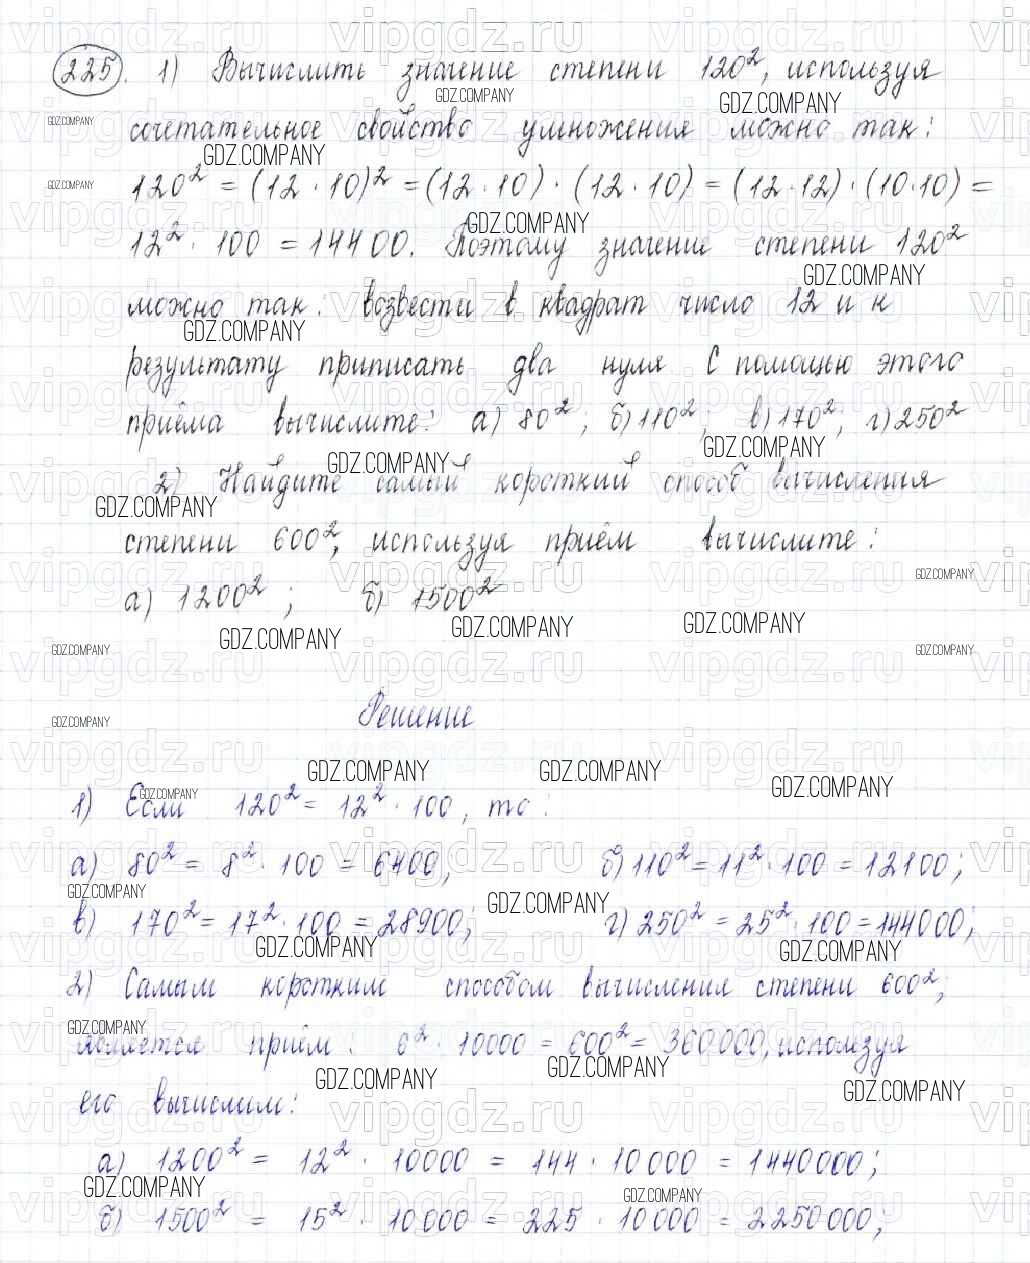 225. 1) Вычислить значение степени 120², используя
сочетательное свойство умножения можно так:
120² = (12 · 10)² = (12 · 10) · (12 · 10) = (12 · 12) · (10 · 10) =
12² · 100 = 14400. Поэтому значение степени 120²
можно так: возвести в квадрат число 12 и к
результату приписать два нуля С помощью этого
приёма вычислите: а) 80²; б) 110²; в) 170²; г) 250²
2) Найдите самый короткий способ вычисления
степени 600², используя приём вычислите:
а) 1200²; б) 1500²
Решение
1) Если 120² = 12² · 100, то:
а) 80² = 8² · 100 = 6400; б) 110² = 11² · 100 = 12100;
в) 170² = 17² · 100 = 28900; г) 250² = 25² · 100 = 144000;
2) Самым коротким способом вычисления степени 600²,
является приём: 6² · 10000 = 600² = 360000, используя
его вычислим:
а) 1200² = 12² · 10000 = 144 · 10000 = 1440000;
б) 1500² = 15² · 10000 = 225 · 10000 = 2250000;
GDZ.COMPANY
vipgdz.ru